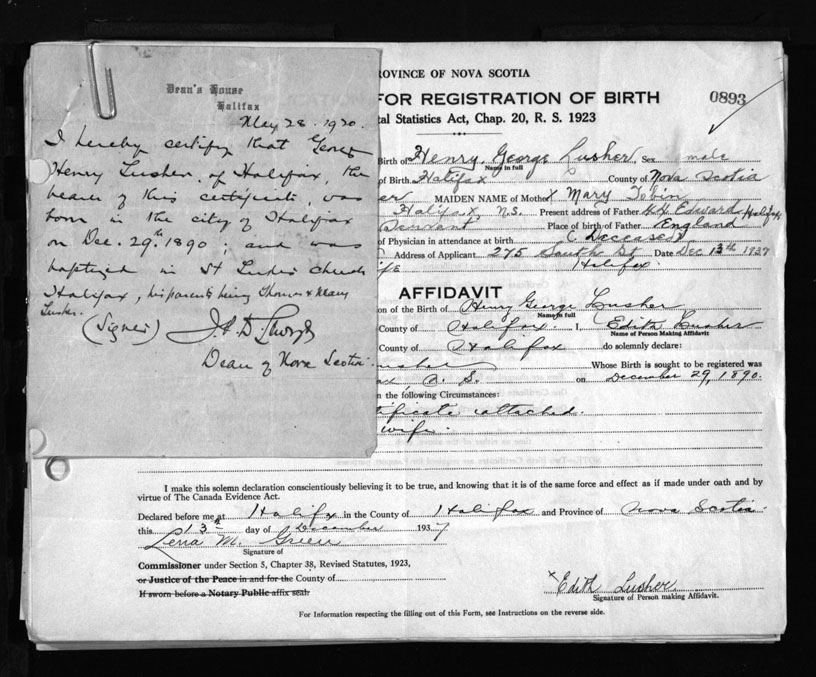 Dean's House
Halifax
May 28. 1920.
I hereby certify that George
Henry Lusher, of Halifax, the
bearer of this certificate, was
born in the city of Halifax
on Dec. 29th 1890; and was
baptized in St Luke's church
Halifax, his parents being Thomas & Mary
Lusher.
(Signed)
Dean of Nova Scotia.
ROVINCE OF NOVA SCOTIA
FOR REGISTRATION OF BIRTH
0893
tal Statistics Act, Chap. 20, R. S. 1923
Birth of Henry George Lusher, Sex male
Name in full
of Birth Halifax County of Nova Scotia
er MAIDEN NAME of Mother X Mary Tobin
Halifax, N.S. Present address of Father 44 Edward Halifax
Place of birth of Father England
of Physician in attendance at birth (deceased)
Address of Applicant 275 South St Date Dec 13th 1937
ife Halifax.
AFFIDAVIT
on of the Birth of Henry George Lusher
Name in full
County of Halifax. I, Edith Lusher
Name of Person Making Affidavit
County of Halifax do solemnly declare:
usher Whose Birth is sought to be registered was
ax N. S. on December 29, 1890.
n the following Circumstances:
tificate attached.
wife.
I make this solemn declaration conscientiously believing it to be true, and knowing that it is of the same force and effect as if made under oath and by
virtue of The Canada Evidence Act.
Declared before me at Halifax in the County of Halifax and Province of Nova Scotia.
this 13th day of December 1937
Lena M. Green
Signature of
Commissioner under Section 5, Chapter 38, Revised Statutes, 1923,
or Justice of the Peace in and for the County of
If sworn before a Notary Public affix seal
X Edith Lusher
Signature of Person making Affidavit.
For Information respecting the filling out of this Form, see Instructions on the reverse side.